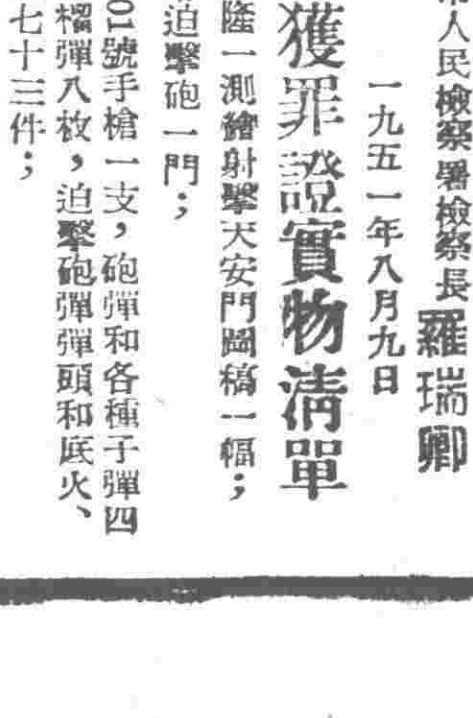 市人民檢察署檢察長羅瑞卿
一九五一年八月九日
獲罪證實物清單
隆一測繪射擊天安門圖稿一幅；
迫擊砲一門；
01號手槍一支，砲彈和各種子彈四
榴彈八枚，迫擊砲彈彈頭和底火、
七十三件；